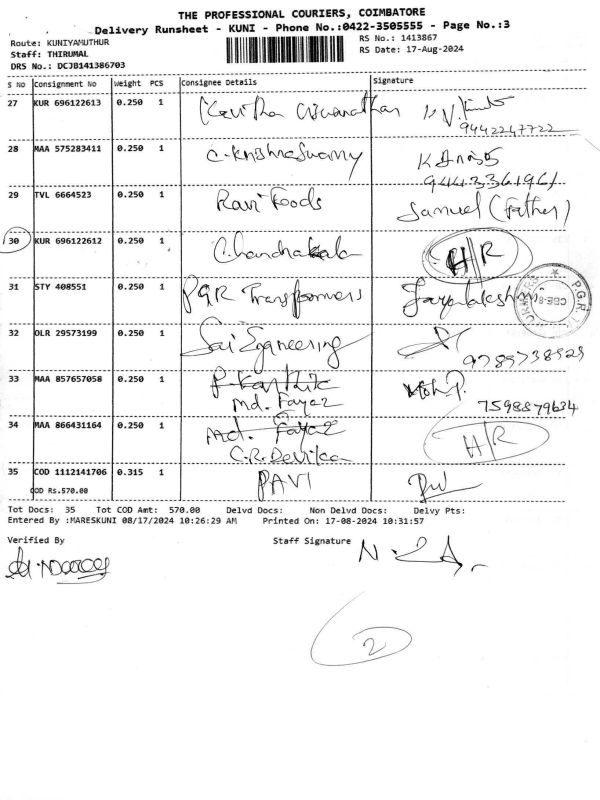 THE PROFESSIONAL COURIERS, COIMBATORE
Delivery Runsheet - KUNI - Phone No.:0422-3505555 - Page No.:3
Route: KUNIYAMUTHUR
Staff: THIRUMAL
DRS No.: DCJB141386703
RS No.: 1413867
RS Date: 17-Aug-2024
S NO Consignment No Weight PCS Consignee Details Signature
27 KUR 696122613 0.250 1
9442247722
28 MAA 575283411 0.250 1 C. Krishnaswamy
29 TVL 6664523 0.250 1 Ravi Foods Samuel (Father)
30 KUR 696122612 0.250 1 C. Chandrakala H/R
31 STY 408551 0.250 1 PGR Transformers
32 OLR 29573199 0.250 1 Sai Engineering
33 MAA 857657058 0.250 1 P. Karthik
Md. Fayaz 7598879634
34 MAA 866431164 0.250 1 Md. Fayaz H/R
C.R. Devika
35 COD 1112141706 0.315 1 PAVI
COD Rs.570.00
Tot Docs: 35 Tot COD Amt: 570.00 Delvd Docs: Non Delvd Docs: Delvy Pts:
Entered By :MARESKUNI 08/17/2024 10:26:29 AM Printed On: 17-08-2024 10:31:57
Verified By Staff Signature
2